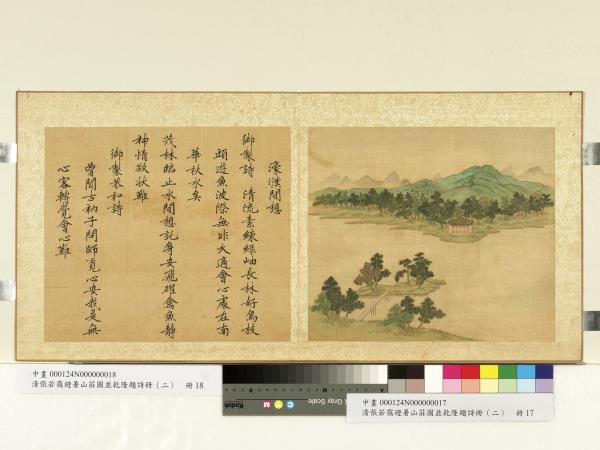 濠濮間想
御製詩 清流素練綠岫長林好鳥枝
頭遊魚波際無非天適會心處在南
華秋水矣
茂林臨止水間想託身安飛躍禽魚靜
神情欲狀難
御製恭和詩
曾聞古衲子問師覓心安我是無
心客轉覺會心難
中畫 000124N000000018
清張若靄避暑山莊圖並乾隆題詩冊(二) 冊 18
Kodak
C Y M
Gray Scale
中畫 000124N000000017
清張若靄避暑山莊圖並乾隆題詩冊(二) 冊 17